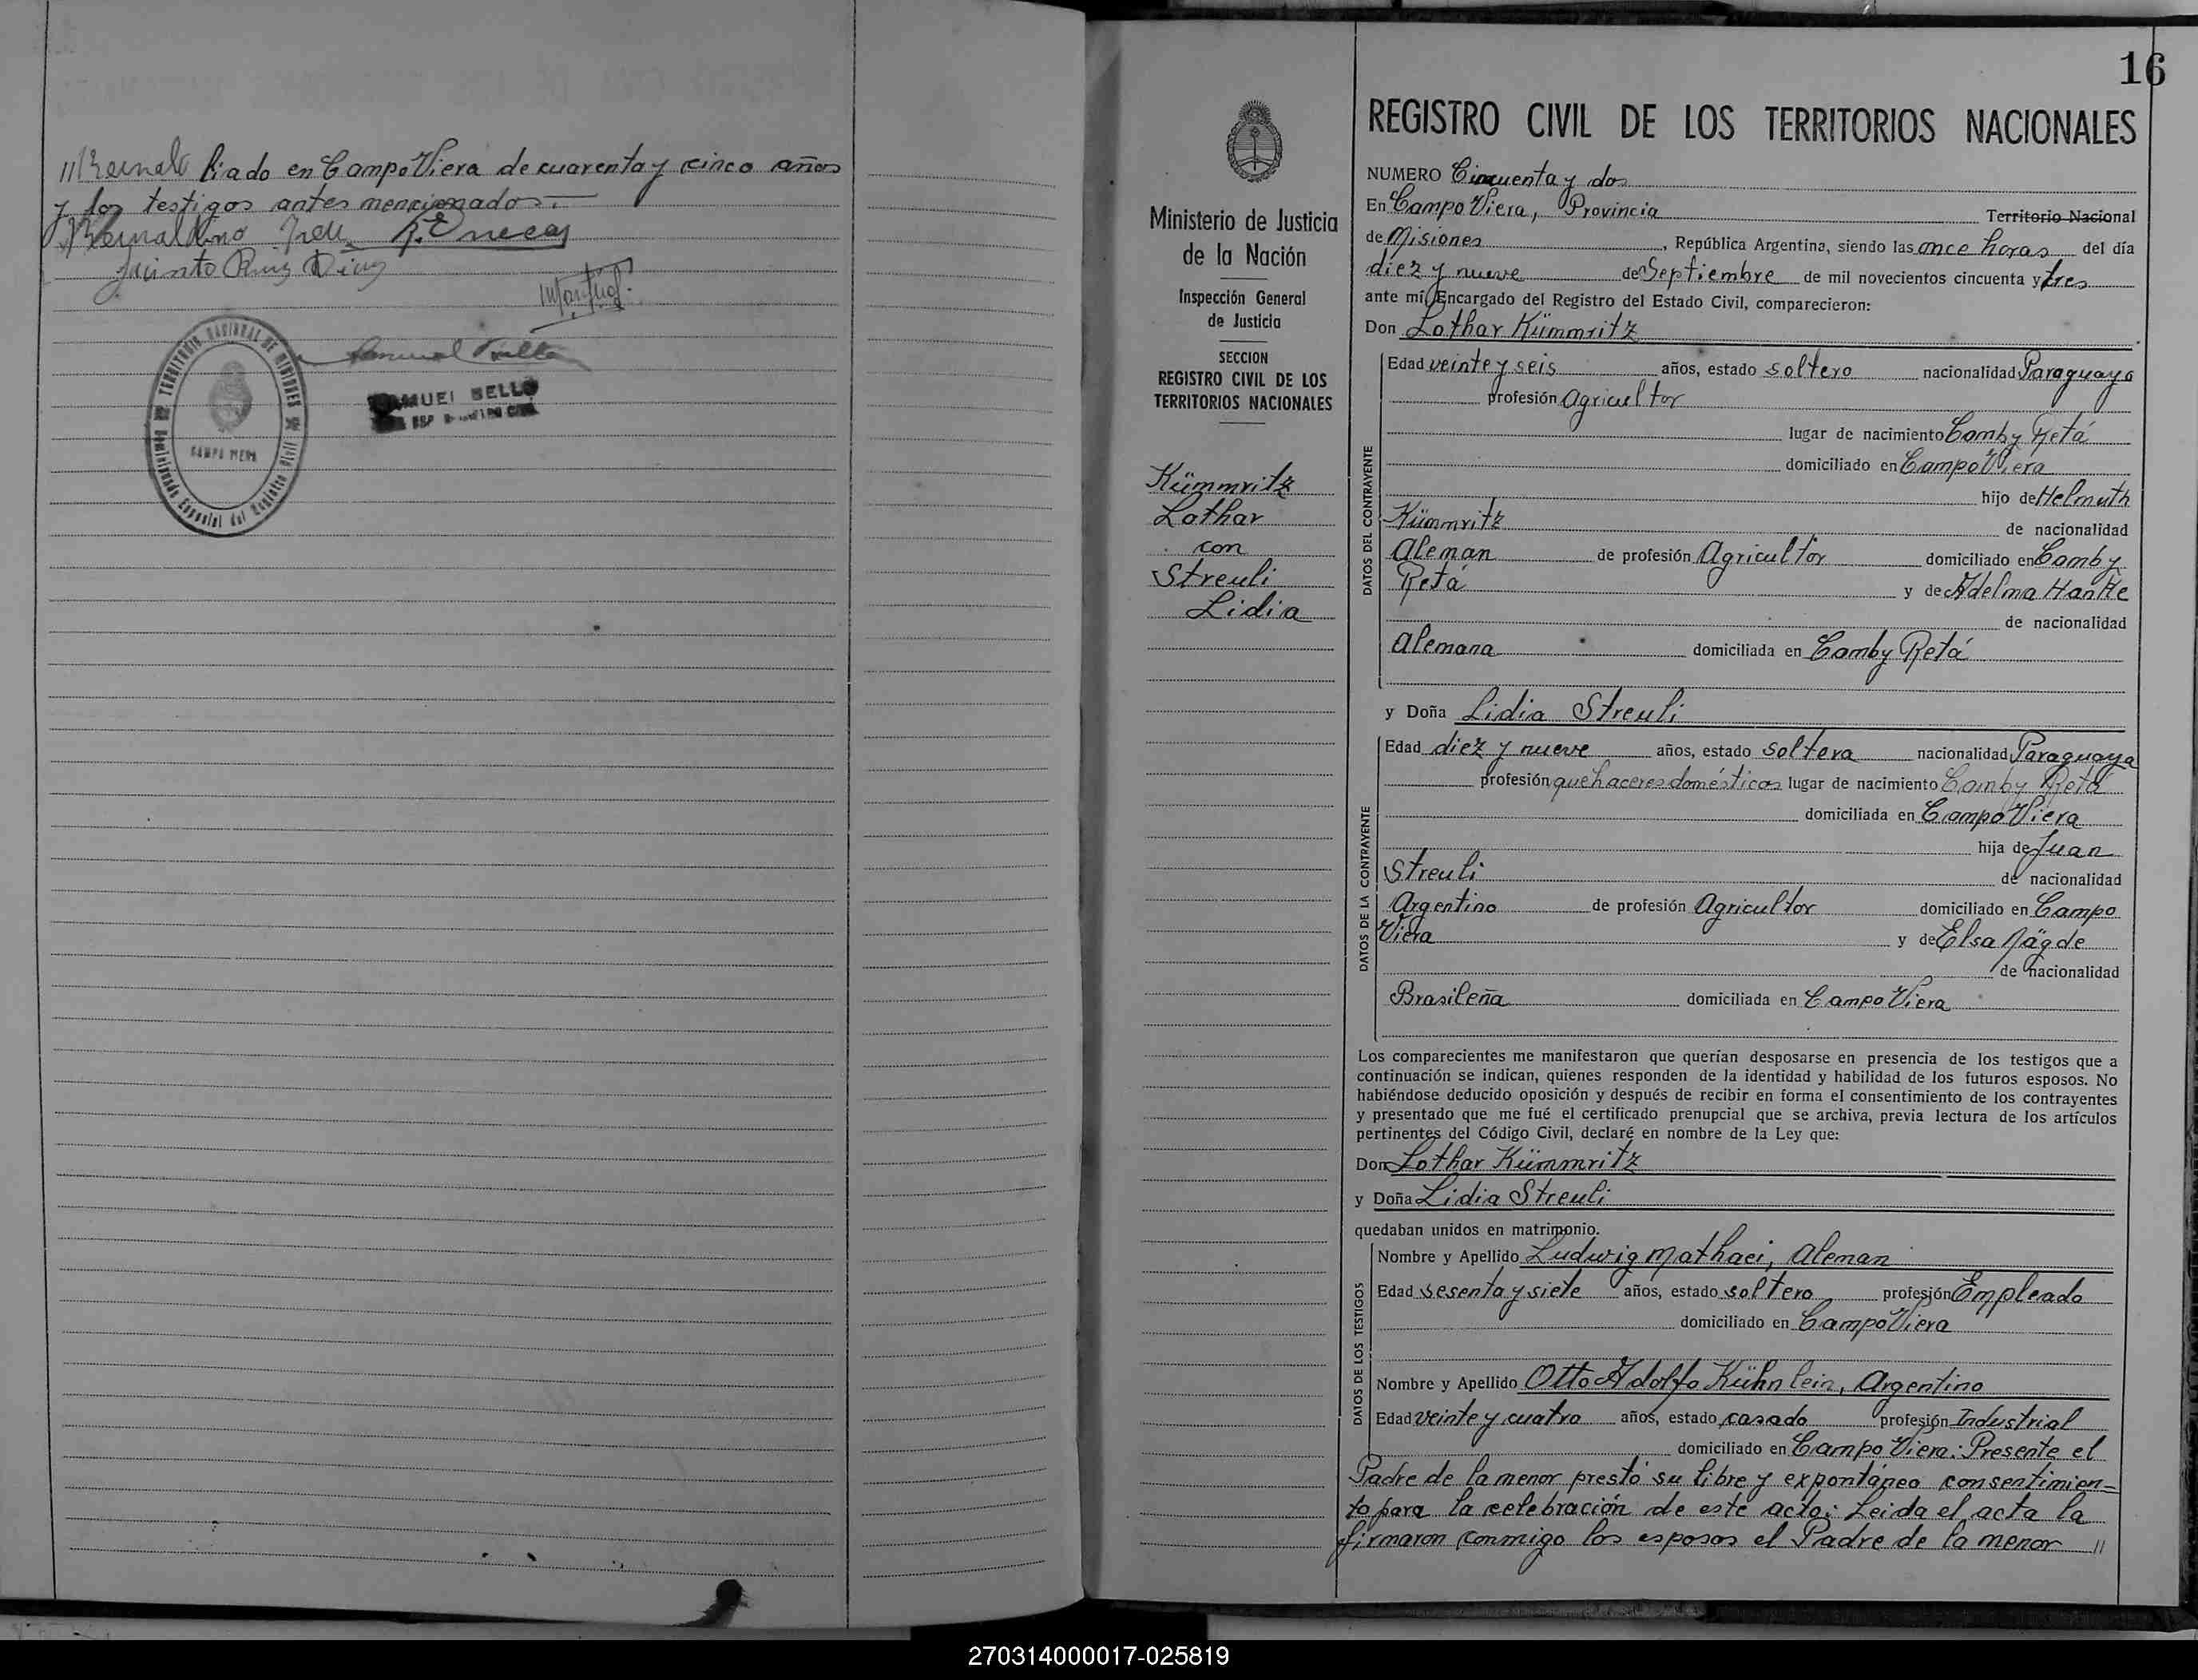 liado en Campo Viera de cuarenta y cinco años
y los testigos antes mencionados.
Jacinto Ruiz Diaz
TERRITORIO NACIONAL DE MISIONES
CAMPO VIERA
SAMUEL BELLO
16
REGISTRO CIVIL DE LOS TERRITORIOS NACIONALES
Ministerio de Justicia
de la Nación
Inspección General
de Justicia
SECCION
REGISTRO CIVIL DE LOS
TERRITORIOS NACIONALES
Kümmritz
Lothar
con
Streuli
Lidia
NUMERO Cincuenta y dos
En Campo Viera, Provincia Territorio Nacional
de Misiones, República Argentina, siendo las once horas del día
diez y nueve de Septiembre de mil novecientos cincuenta y tres
ante mí, Encargado del Registro del Estado Civil, comparecieron:
Don Lothar Kümmritz
DATOS DEL CONTRAYENTE
Edad veinte y seis años, estado soltero nacionalidad Paraguayo
profesión Agricultor
lugar de nacimiento Camby Retá
domiciliado en Campo Viera
hijo de Helmuth
Kümmritz de nacionalidad
Aleman de profesión Agricultor domiciliado en Camby
Retá y de Adelma Hanke
de nacionalidad
Alemana domiciliada en Camby Retá
y Doña Lidia Streuli
DATOS DE LA CONTRAYENTE
Edad diez y nueve años, estado soltera nacionalidad Paraguaya
profesión quehaceres domésticos lugar de nacimiento Camby Retá
domiciliada en Campo Viera
hija de Juan
Streuli de nacionalidad
Argentino de profesión Agricultor domiciliado en Campo
Viera y de Elsa Nägde
de nacionalidad
Brasileña domiciliada en Campo Viera
Los comparecientes me manifestaron que querían desposarse en presencia de los testigos que a
continuación se indican, quienes responden de la identidad y habilidad de los futuros esposos. No
habiéndose deducido oposición y después de recibir en forma el consentimiento de los contrayentes
y presentado que me fué el certificado prenupcial que se archiva, previa lectura de los artículos
pertinentes del Código Civil, declaré en nombre de la Ley que:
Don Lothar Kümmritz
y Doña Lidia Streuli
quedaban unidos en matrimonio.
DATOS DE LOS TESTIGOS
Nombre y Apellido Ludwig Mathaei, Aleman
Edad sesenta y siete años, estado soltero profesión Empleado
domiciliado en Campo Viera
Nombre y Apellido Otto Adolfo Kühnlein, Argentino
Edad veinte y cuatro años, estado casado profesión Industrial
domiciliado en Campo Viera: Presente el
Padre de la menor prestó su libre y expontáneo consentimien=
to para la celebración de este acto: Leida el acta la
firmaron conmigo los esposos el Padre de la menor //
270314000017-025819